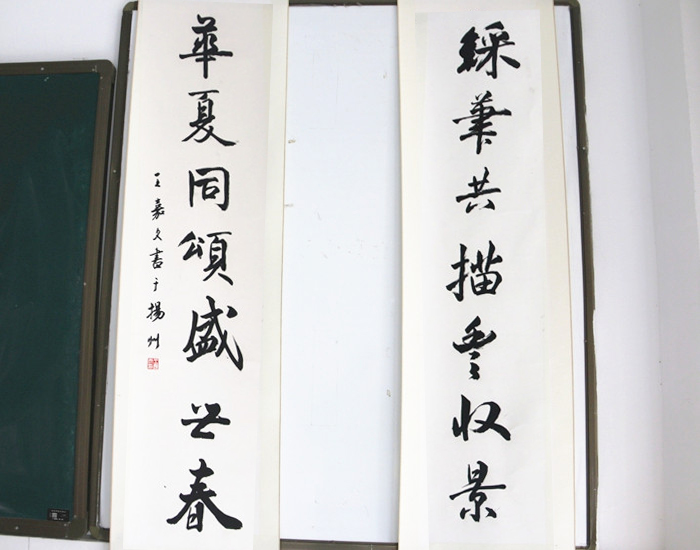 綵筆共描豐收景
華夏同頌盛世春
王嘉久書于揚州